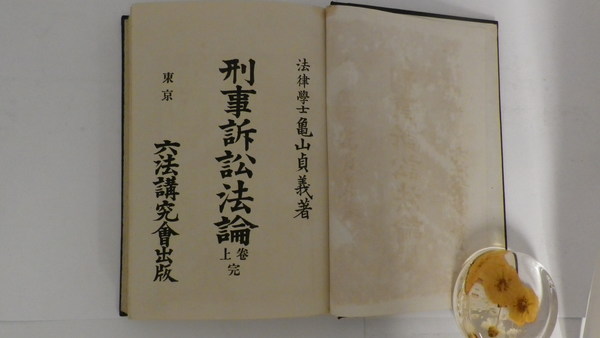 法律學士亀山貞義著
刑事訴訟法論 卷上完
東京
六法講究會出版